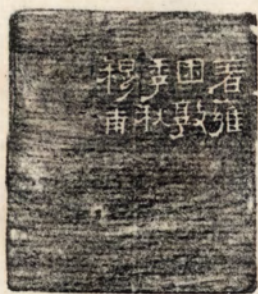 著雍
困敦
季秋
穆甫